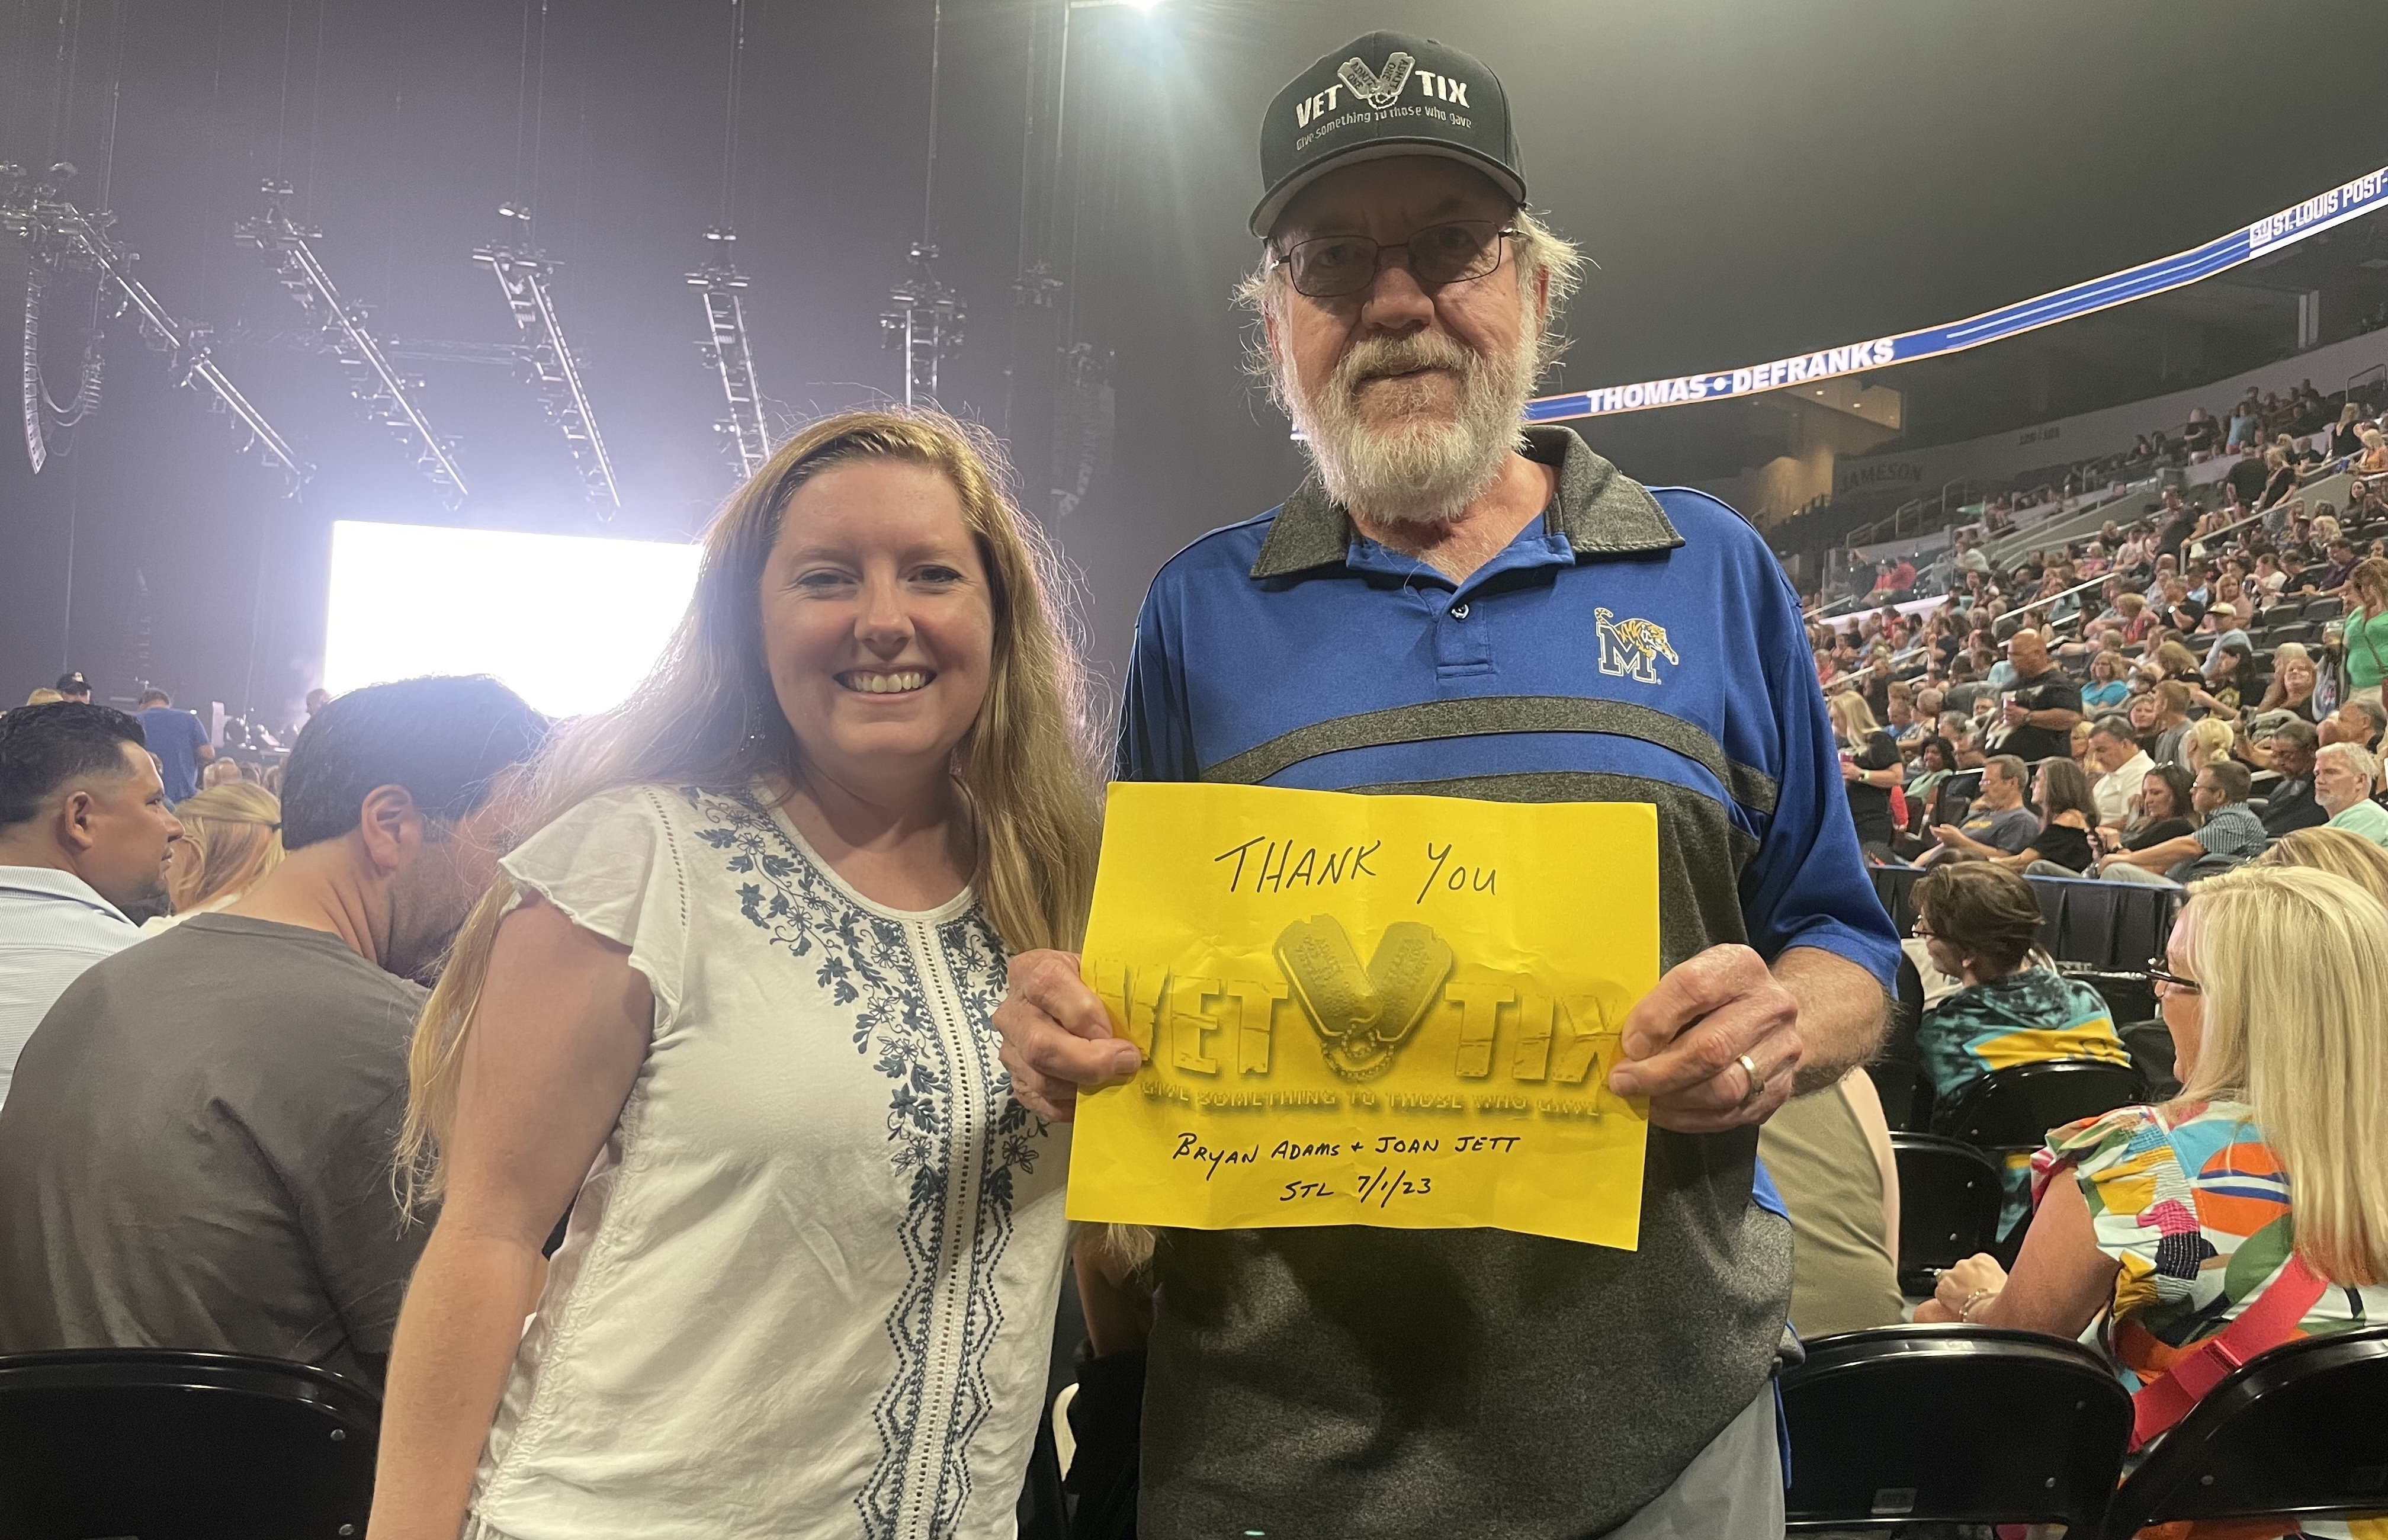 VET TIX
Give something to those who gave
ST. LOUIS POST-
THOMAS • DEFRANKS
JAMESON
M
THANK YOU
VET TIX
GIVE SOMETHING TO THOSE WHO GAVE
BRYAN ADAMS + JOAN JETT
STL 7/1/23